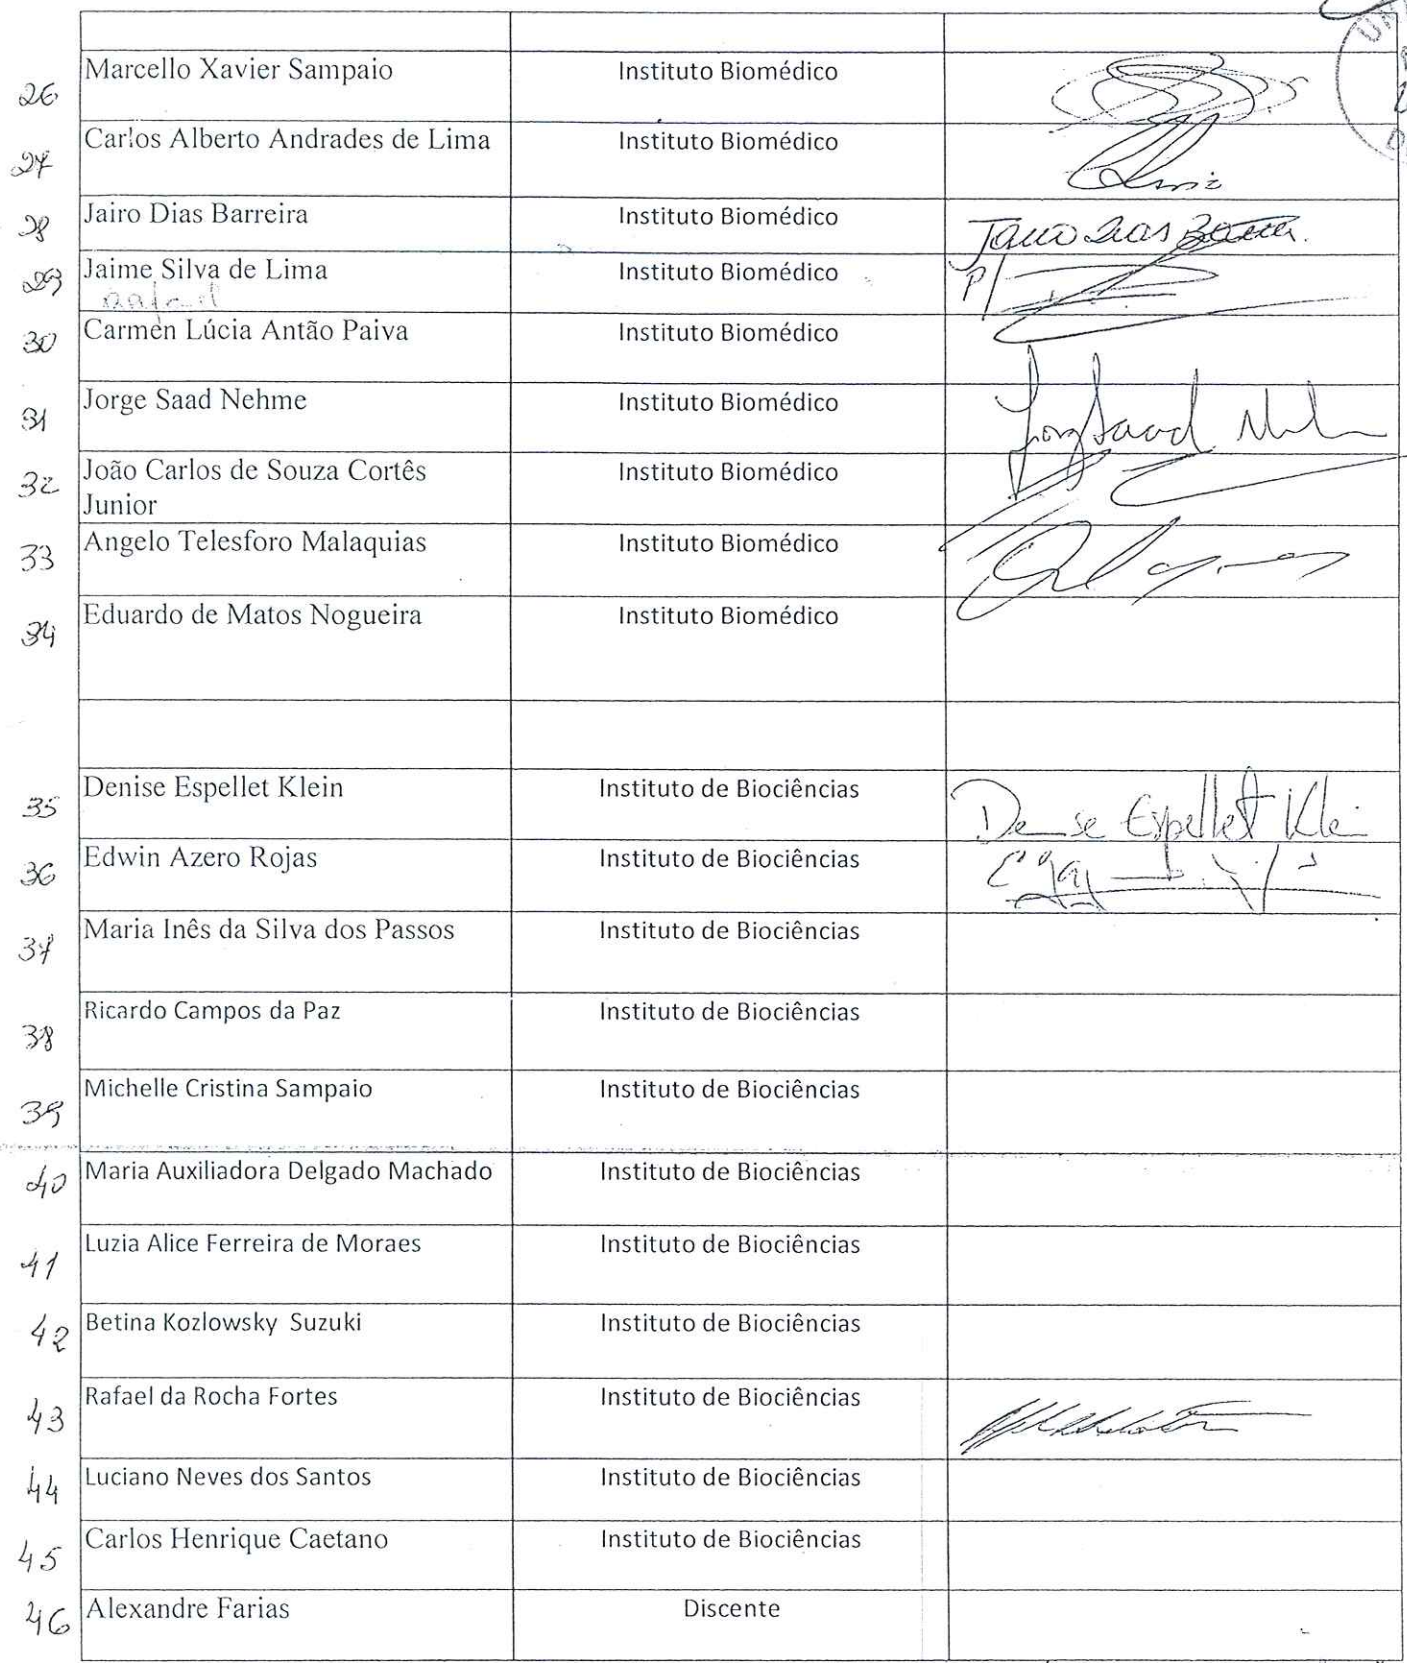 26 Marcello Xavier Sampaio Instituto Biomédico
27 Carlos Alberto Andrades de Lima Instituto Biomédico
28 Jairo Dias Barreira Instituto Biomédico Jairo Dias Barreira.
29 Jaime Silva de Lima Instituto Biomédico P/
Rafael
30 Carmen Lúcia Antão Paiva Instituto Biomédico
31 Jorge Saad Nehme Instituto Biomédico Jorge Saad Nehme
32 João Carlos de Souza Cortês Instituto Biomédico
Junior
33 Angelo Telesforo Malaquias Instituto Biomédico
34 Eduardo de Matos Nogueira Instituto Biomédico
35 Denise Espellet Klein Instituto de Biociências Denise Espellet Klein
36 Edwin Azero Rojas Instituto de Biociências
37 Maria Inês da Silva dos Passos Instituto de Biociências
38 Ricardo Campos da Paz Instituto de Biociências
39 Michelle Cristina Sampaio Instituto de Biociências
40 Maria Auxiliadora Delgado Machado Instituto de Biociências
41 Luzia Alice Ferreira de Moraes Instituto de Biociências
42 Betina Kozlowsky Suzuki Instituto de Biociências
43 Rafael da Rocha Fortes Instituto de Biociências
44 Luciano Neves dos Santos Instituto de Biociências
45 Carlos Henrique Caetano Instituto de Biociências
46 Alexandre Farias Discente